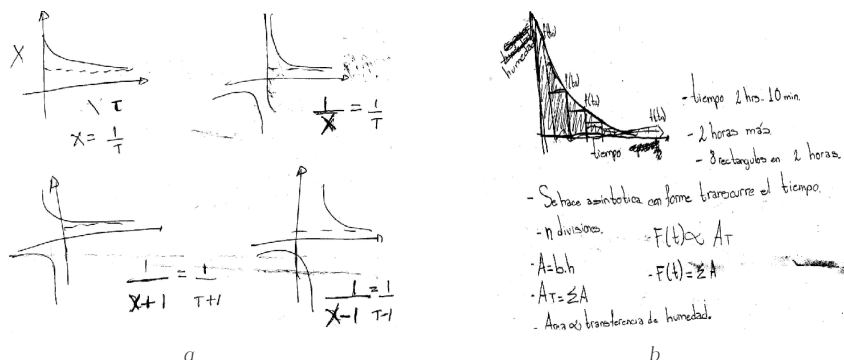 X
\ τ
x = 1/T
1/X = 1/T
1/X+1 = 1/T+1
1/X-1 = 1/T-1
a
humedad
f(t₀)
f(t₁)
tiempo
- tiempo 2 hrs. 10 min.
- 2 horas más.
- 8 rectangulos en 2 horas.
- Se hace asintotica con forme transcurre el tiempo.
- n divisiones.
- F(t) ∝ A_T
- A=b.h
- F(t) = ΣA
- A_T = ΣA
- Area ∝ transferencia de humedad.
b